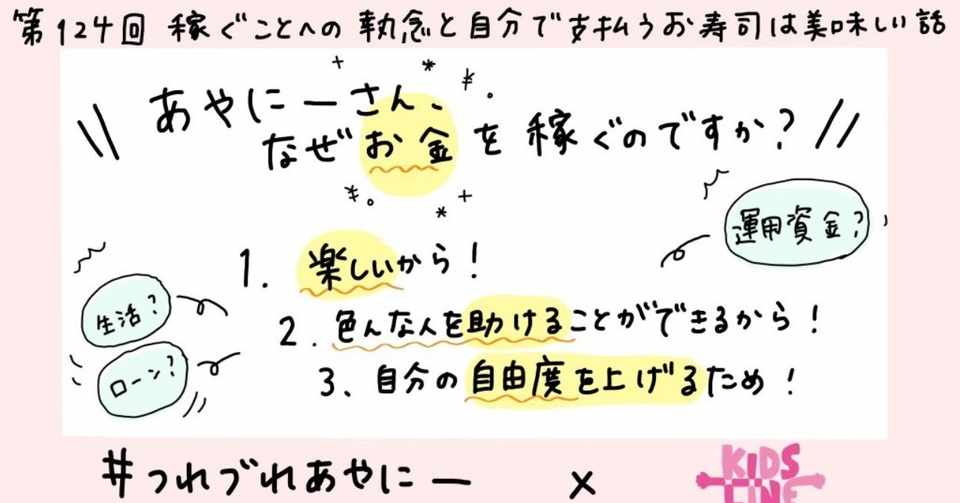 第124回 稼ぐことへの執念と自分で支払うお寿司は美味しい話
あやにーさん、
なぜお金を稼ぐのですか？
運用資金？
1. 楽しいから！
生活？
2. 色んな人を助けることができるから！
ローン？
3、自分の自由度を上げるため！
#つれづれあやにー × KIDS
LINE